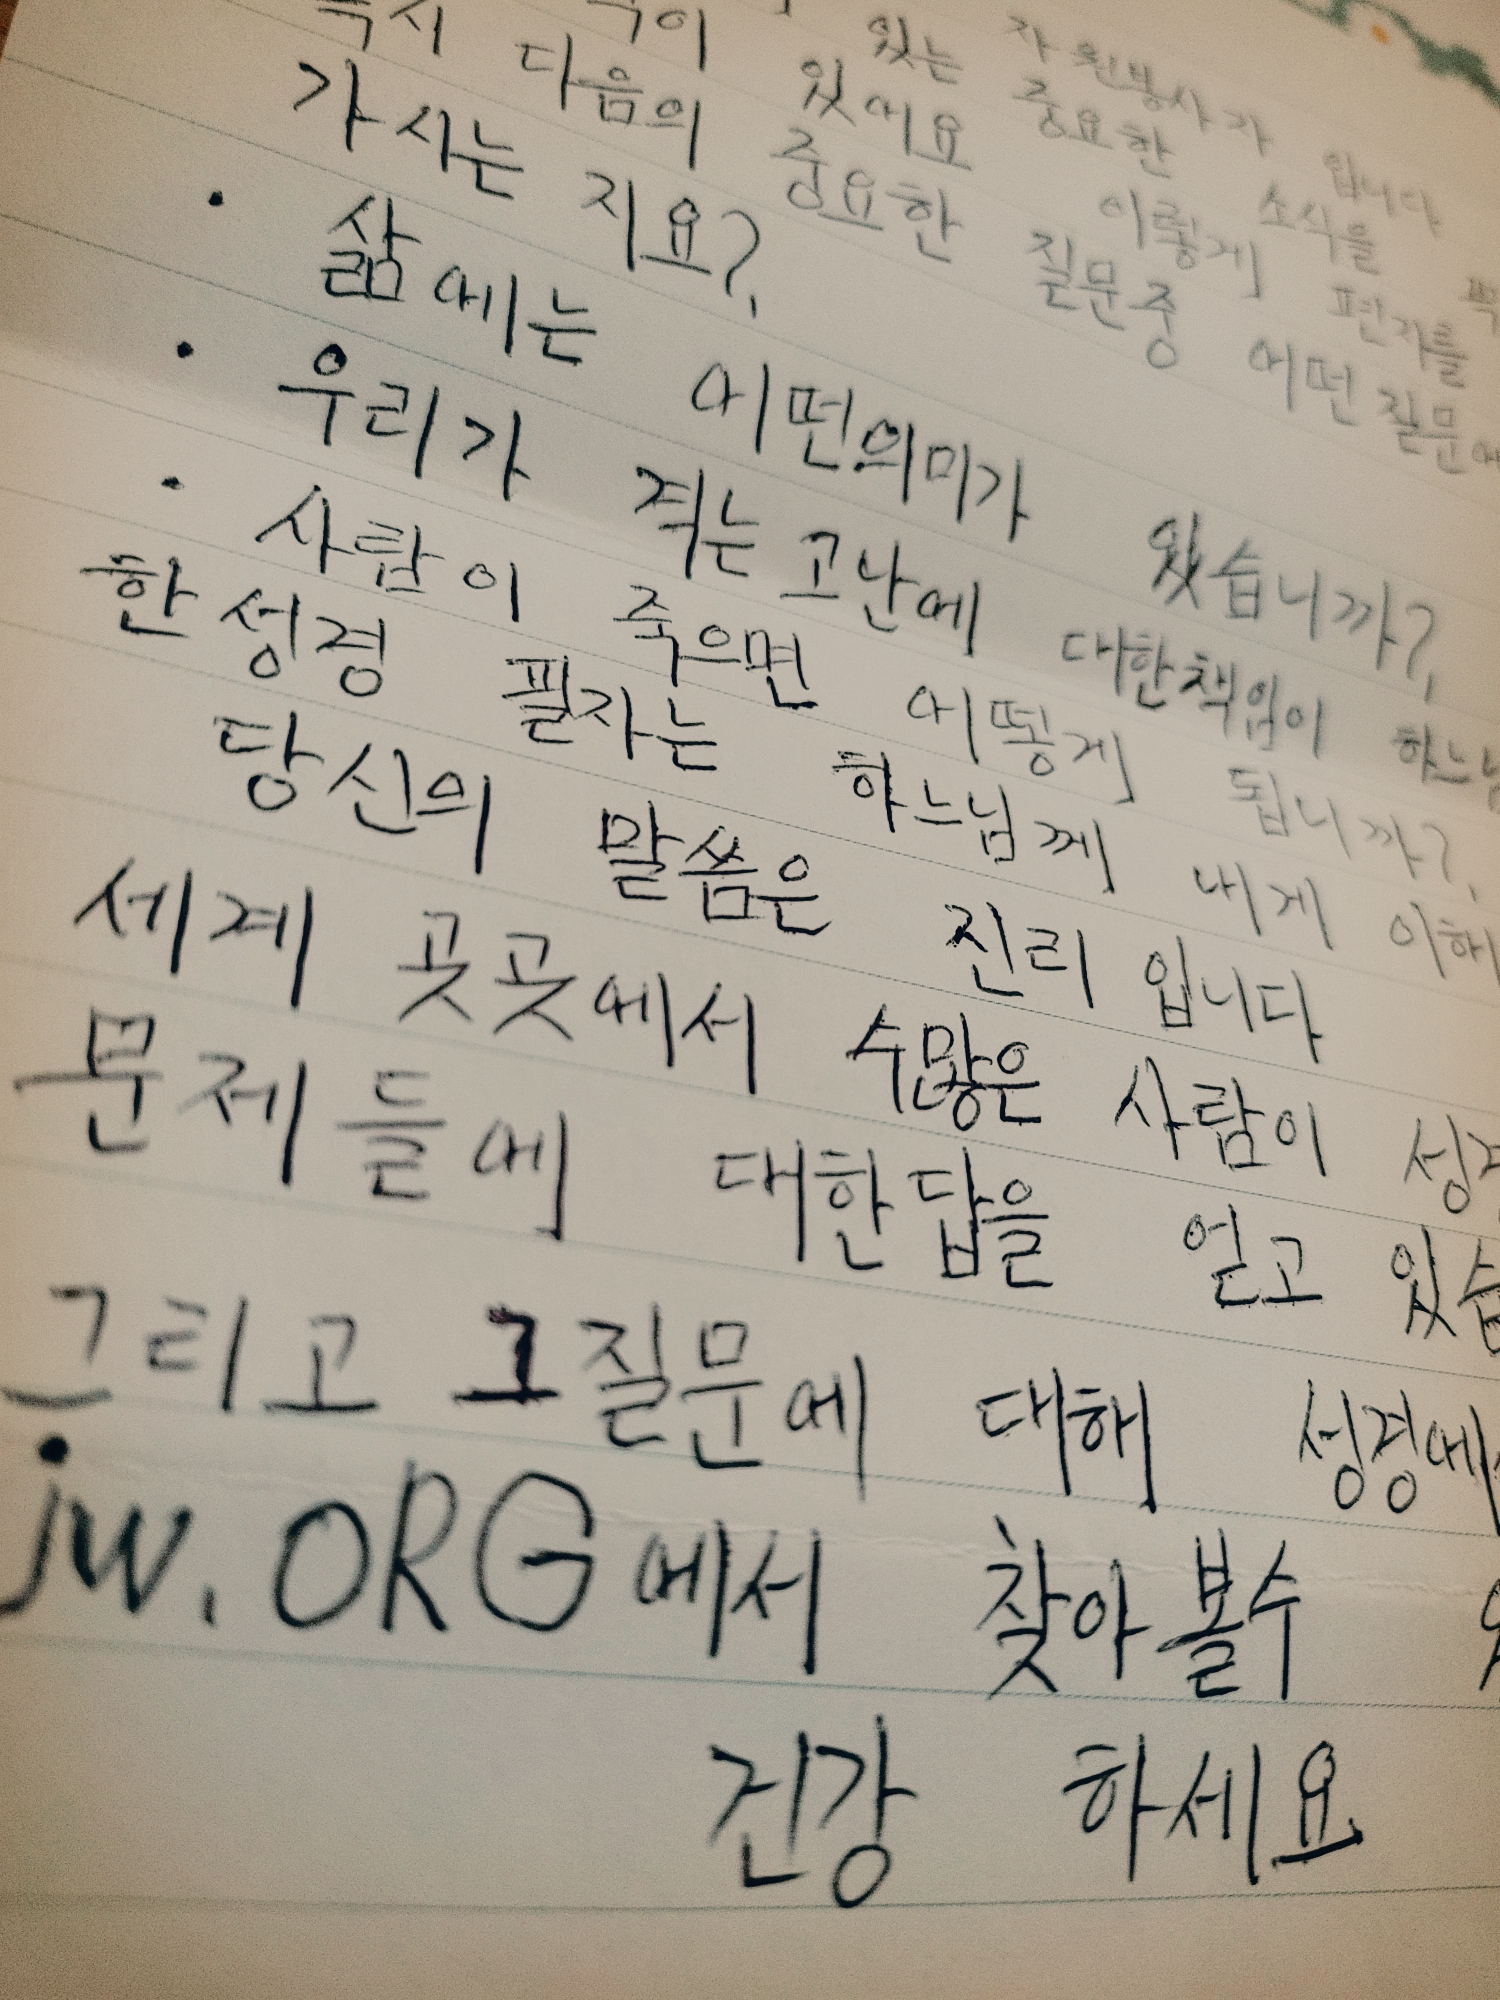 있는 자원봉사자 입니다
있어요 중요한 소식을
다음의 중요한 이렇게 편지를
가시는 지요? 질문중 어떤 질문에
• 삶에는 어떤의미가 있습니까?
• 우리가 격는 고난에 대한책임이 하느님
• 사람이 죽으면 어떻게 됩니까?
한 성경 필자는 하느님께 내게 이해
당신의 말씀은 진리 입니다
세계 곳곳에서 수많은 사람이 성경
문제들에 대한답을 얻고 있습
그리고 그질문에 대해 성경에
jw.ORG에서 찾아볼수
건강 하세요